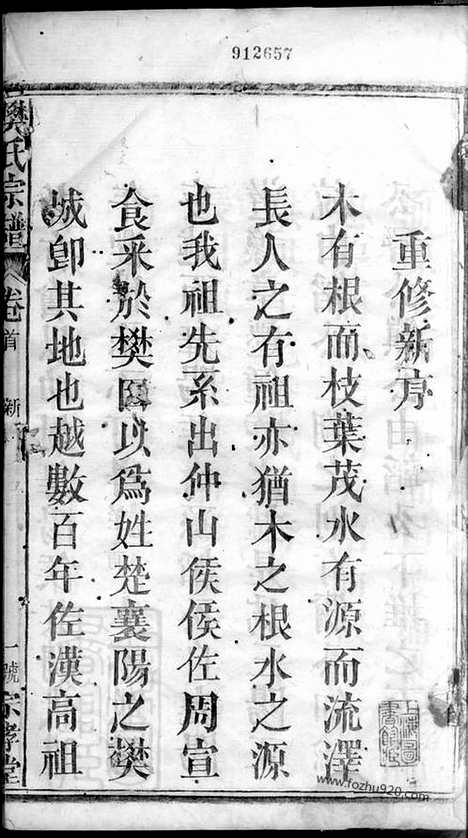 912657
重修新序
木有根而枝葉茂水有源而流澤
長人之有祖亦猶木之根水之源
也我祖先系出仲山侯侯佐周宣
食采於樊因以爲姓楚襄陽之樊
城卽其地也越數百年佐漢高祖
樊氏宗譜 卷首 新 一號 宗孝堂
www.fozhu920.com